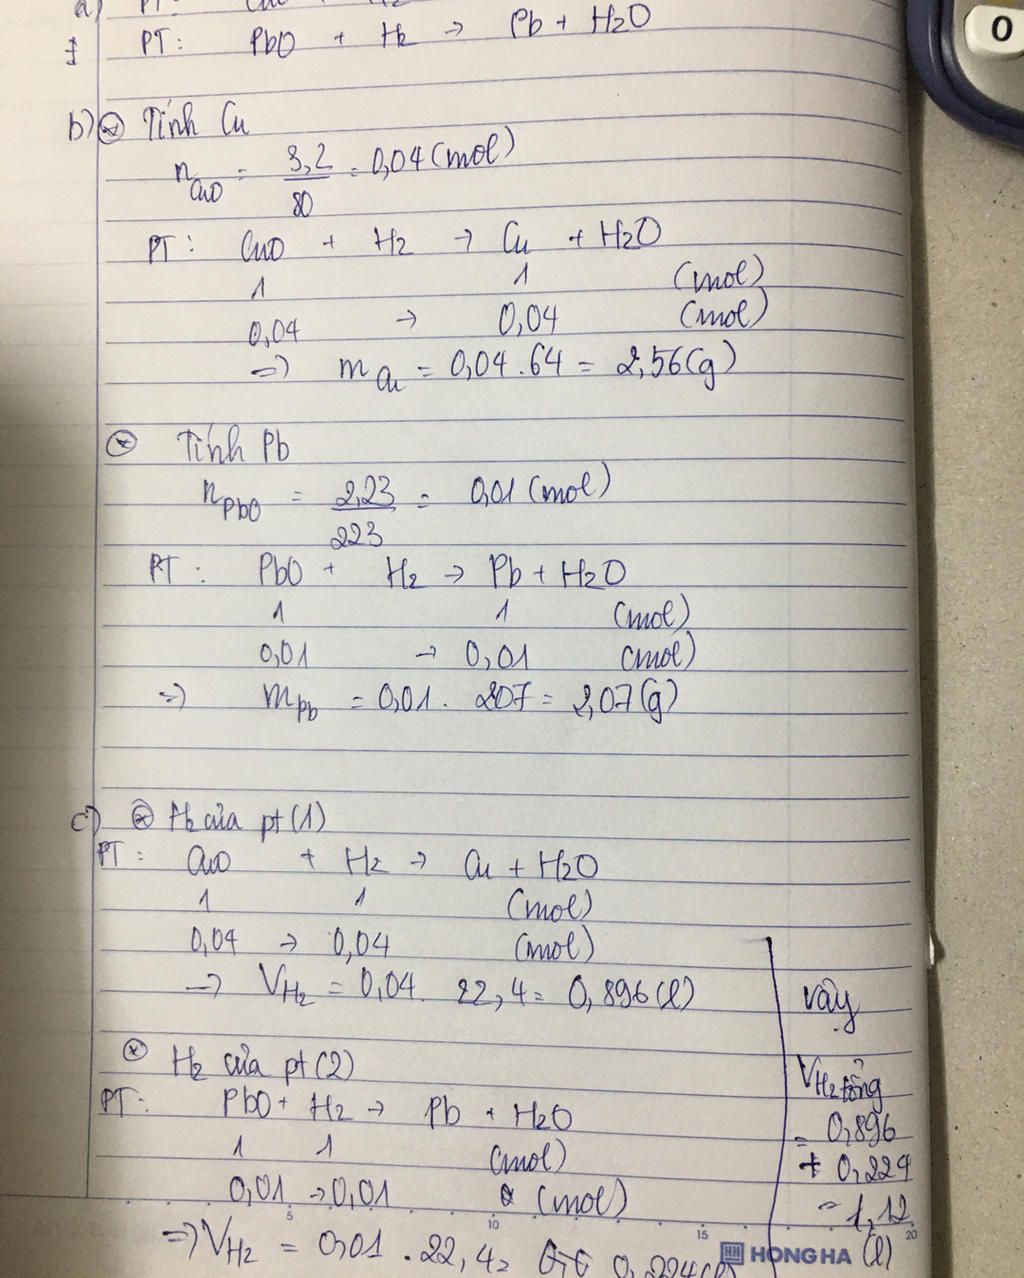 a) PT:
PT: PbO + H2 → Pb + H2O
b) Tính Cu
nCuO = 3,2/80 = 0,04 (mol)
PT: CuO + H2 → Cu + H2O
1 1 (mol)
0,04 → 0,04 (mol)
=> mCu = 0,04 . 64 = 2,56 (g)
Tính Pb
nPbO = 2,23/223 = 0,01 (mol)
PT: PbO + H2 → Pb + H2O
1 1 (mol)
0,01 → 0,01 (mol)
=> mPb = 0,01 . 207 = 2,07 (g)
c) H2 của pt (1)
PT: CuO + H2 → Cu + H2O
1 1 (mol)
0,04 → 0,04 (mol)
→ VH2 = 0,04 . 22,4 = 0,896 (l)
H2 của pt (2)
PT: PbO + H2 → Pb + H2O
1 1 (mol)
0,01 → 0,01 (mol)
=> VH2 = 0,01 . 22,4 = 0,224 (l)
vậy
VH2 tổng
= 0,896
+ 0,224
= 1,12
(l)
5 10 15 20
HH HONG HA
0